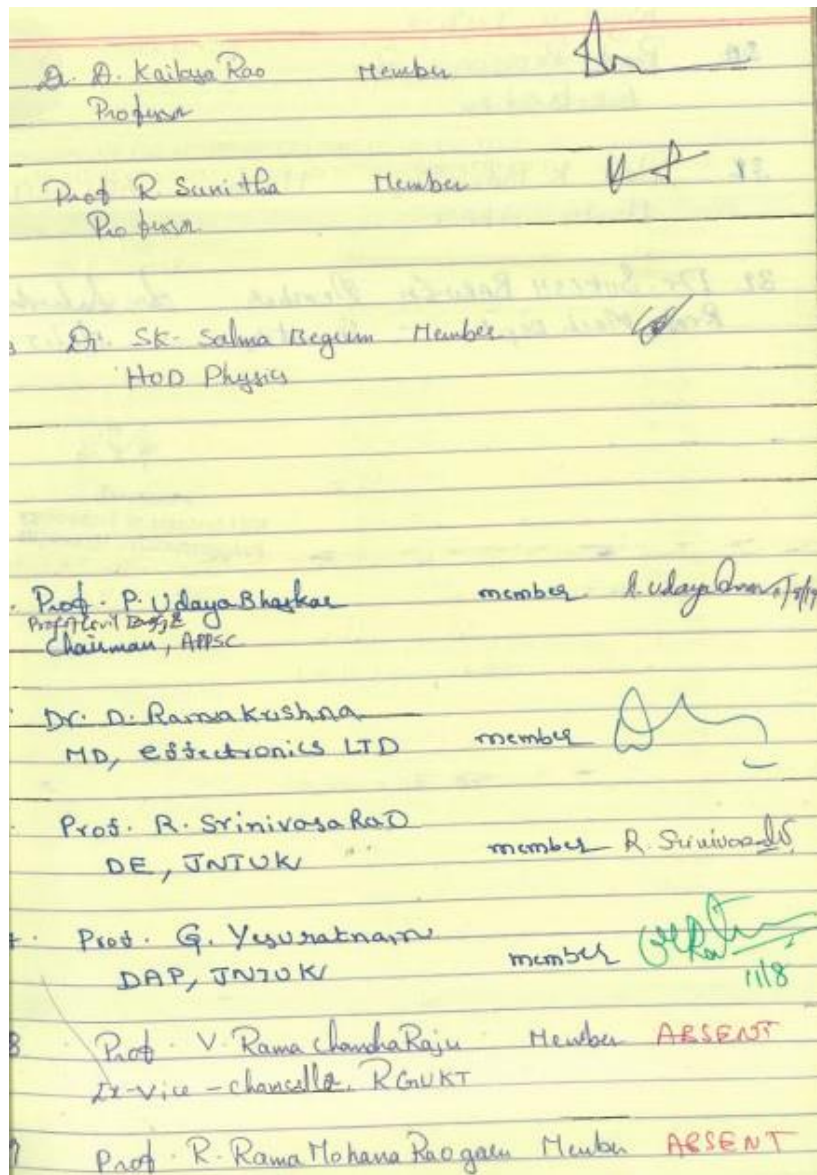 Dr. D. Kailasa Rao Member
Professor
Prof R Sunitha Member
Professor
Dr SK. Salma Begum Member
HOD Physics
Prof. P. Udaya Bhaskar member
Prof of Civil Engg &
Chairman, APPSC
Dr. D. Ramakrishna
MD, Effectronics LTD member
Prof. R. Srinivasa Rao
DE, JNTUK member R. Srinivasa
Prof. G. Yesuratnam
DAP, JNTUK member
11/8
8 Prof. V. Rama Chandra Raju Member ABSENT
Ex-Vice-chancellor, RGUKT
Prof. R. Rama Mohana Rao garu Member ABSENT